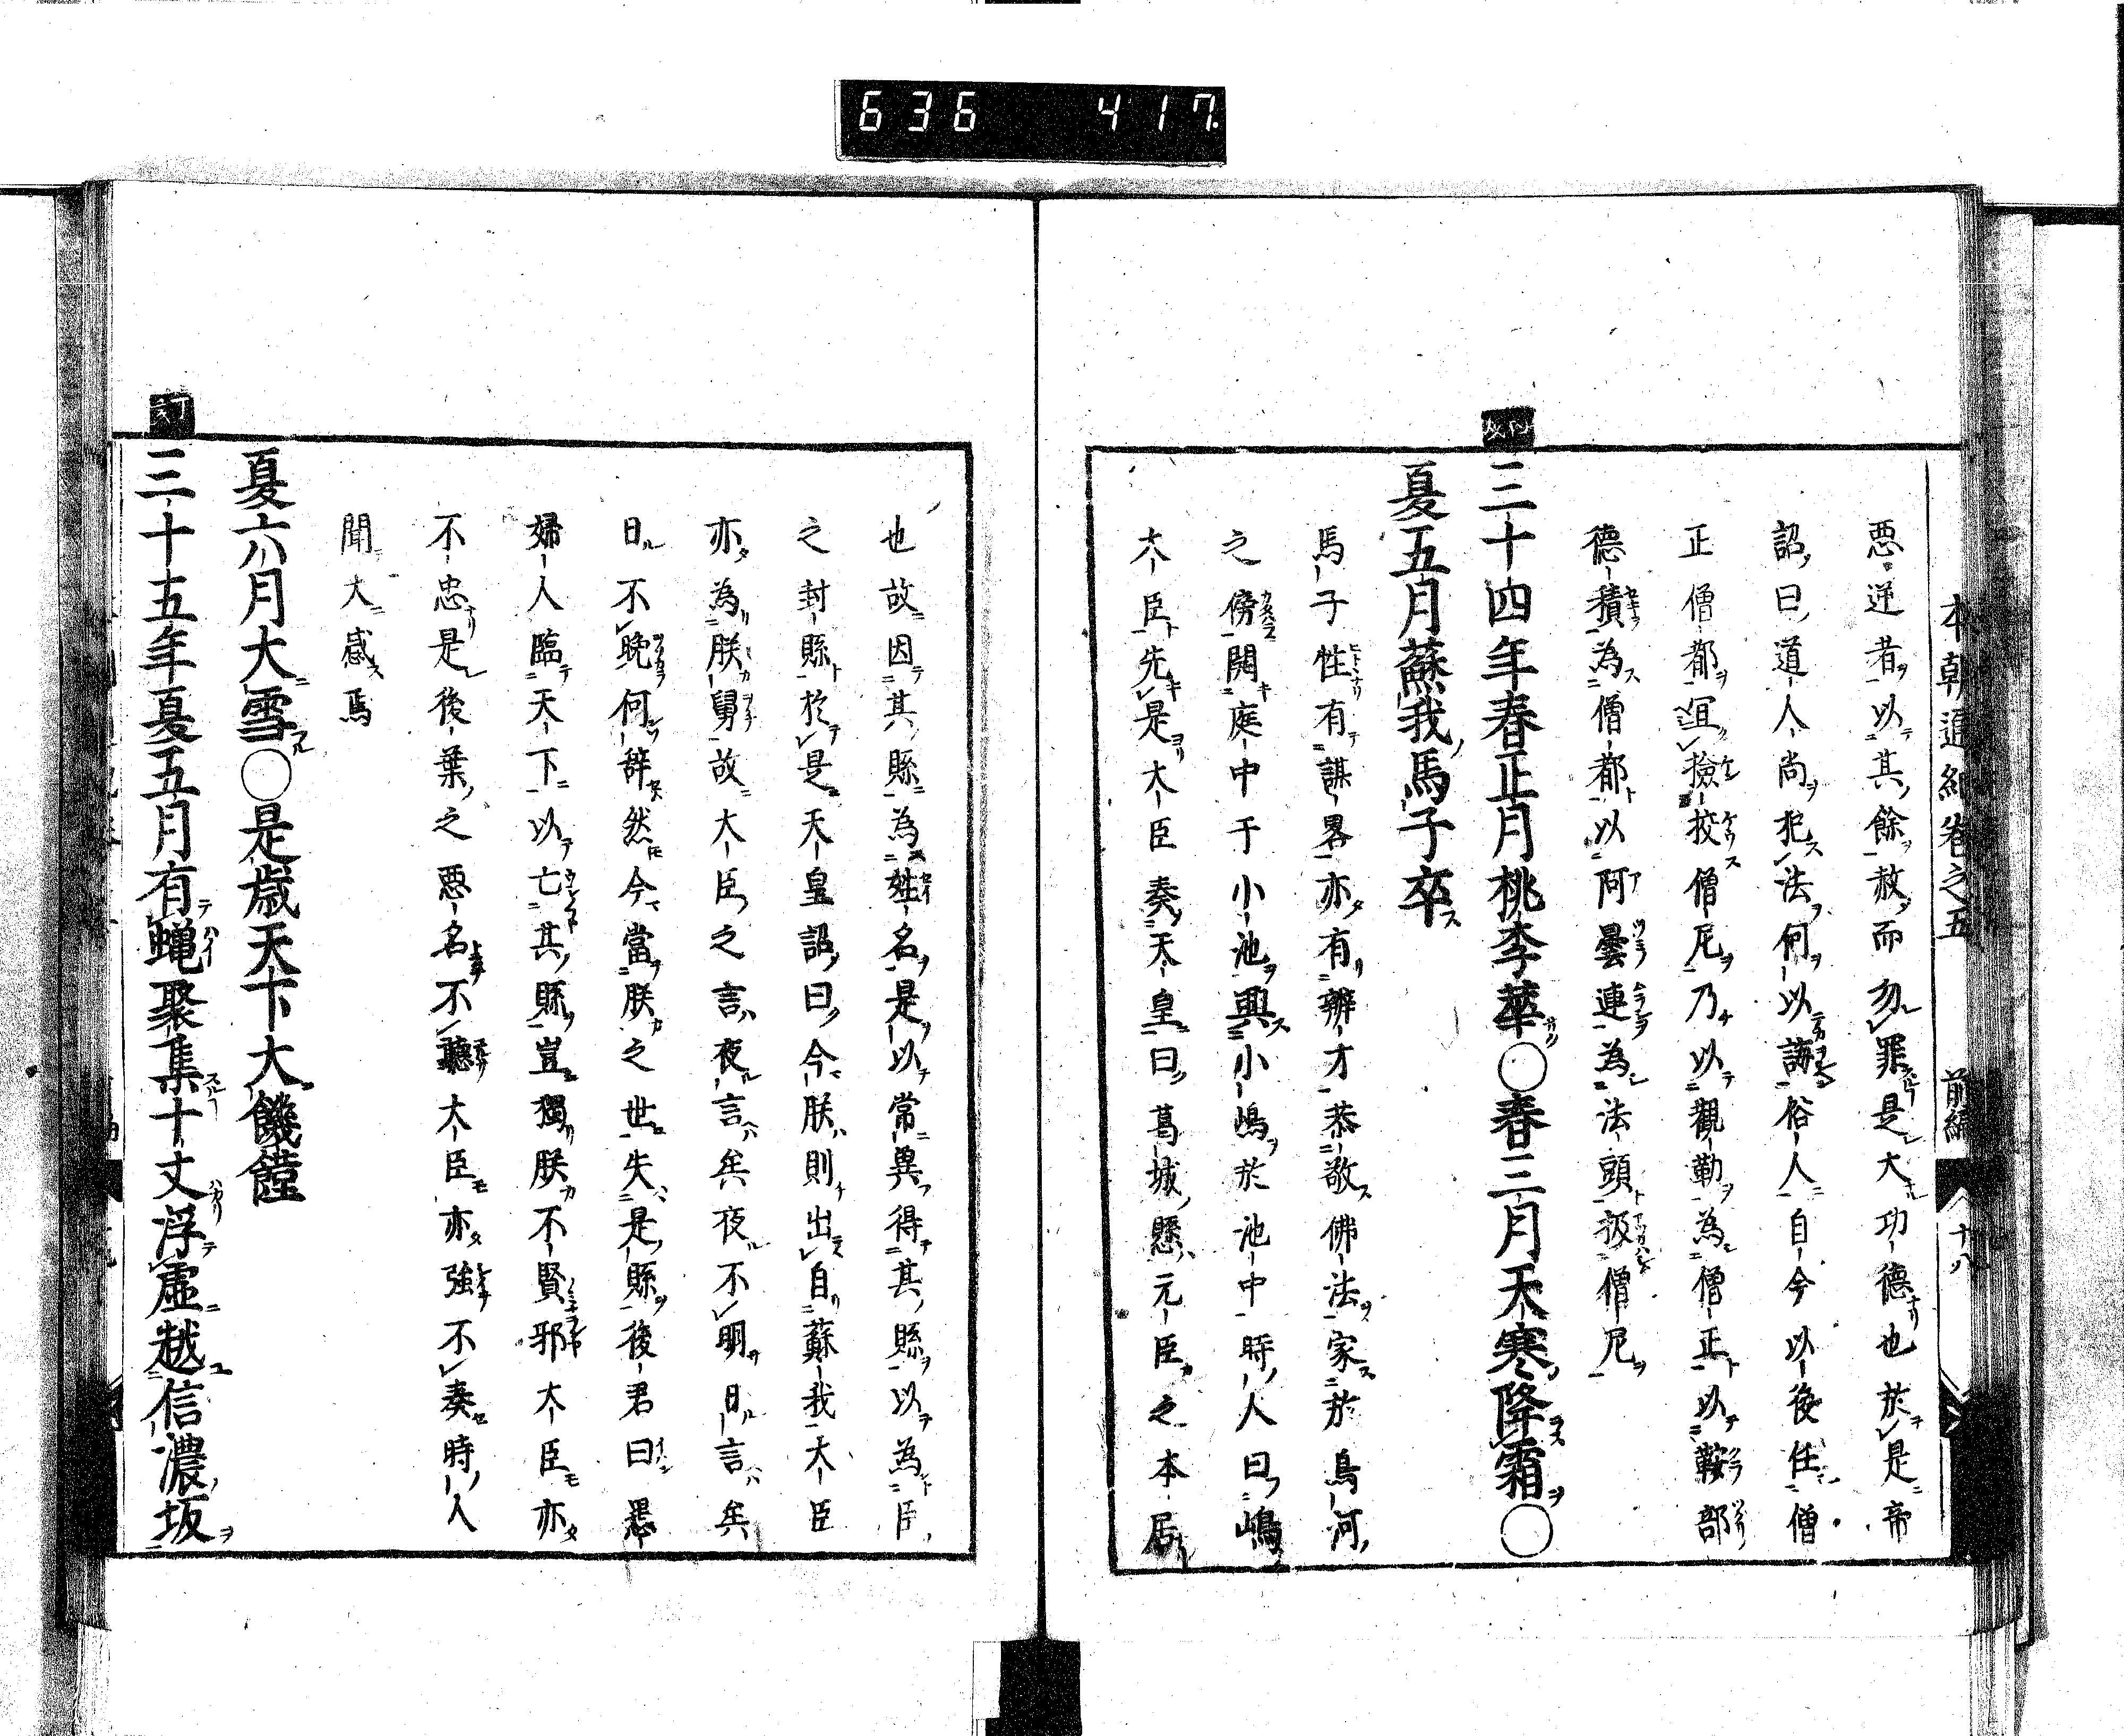 636 417
本朝通紀卷之五 前編 十八
悪逆者以其餘赦而勿罪是大功德也於是帝
詔曰道人尚犯法何以誨俗人自今以後任僧
正僧都仍撿挍僧尼乃以觀勒為僧正以鞍部
德積為僧都以阿曇連為法頭扱僧尼
三十四年春正月桃李華〇春三月天寒降霜〇
夏五月蘇我馬子卒
馬子性有謀畧亦有辨才恭敬佛法家於鳥河
之傍開庭中于小池興小嶋於池中時人曰嶋
大臣先是大臣奏天皇曰葛城懸元臣之本居
也故因其縣為姓名是以常異得其縣以為臣
之封縣於是天皇詔曰今朕則出自蘇我大臣
亦為朕舅故大臣之言夜言矣夜不明日言矣
日不晚何辞然今當朕之世失是縣後君曰愚
婦人臨天下以亡其縣豈獨朕不賢邪大臣亦
不忠是後葉之悪名不聽大臣亦強不奏時人
聞大感焉
夏六月大雪〇是歳天下大饑饉
三十五年夏五月有蝿聚集十丈浮虚越信濃坂